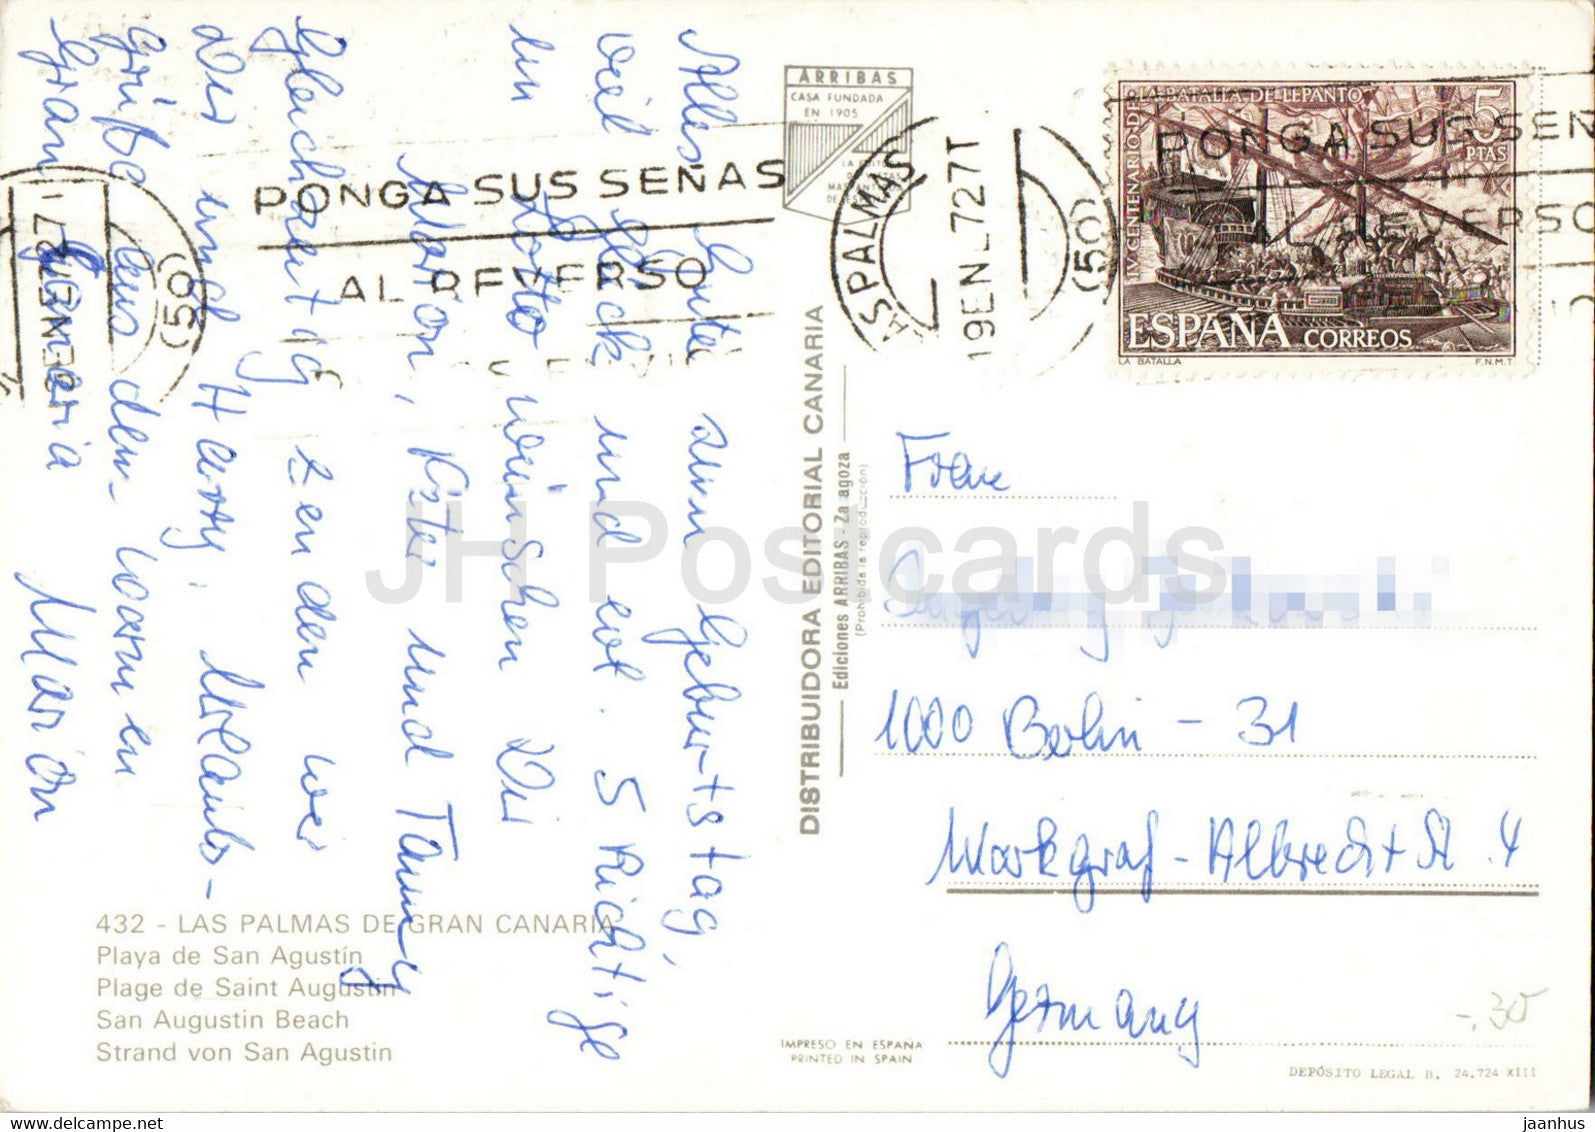 Alles Gute zum Geburtstag,
viel Glück und evt. 5 Richtige
im Lotto wünschen Dir
Marion, Peter und Tammy
Gleichzeitig senden wir
Dir und Harry, Urlaubs-
grüße aus dem warmen
Gran Canaria Marion
ARRIBAS
CASA FUNDADA
EN 1905
PONGA SUS SEÑAS
AL REVERSO
(50)
LAS PALMAS
19 EN L 72 7T
(50)
IV CENTENARIO DE LA BATALLA DE LEPANTO
5
PTAS
PONGA SUS SEÑ
AL REVERSO
ESPAÑA CORREOS
LA BATALLA F.N.M.T.
DISTRIBUIDORA EDITORIAL CANARIA
Ediciones ARRIBAS - Zaragoza
(Prohibida la reproducción)
Frau
1000 Berlin - 31
Markgraf-Albrecht St. 4
Germany
-.30
432 - LAS PALMAS DE GRAN CANARIA
Playa de San Agustín
Plage de Saint Augustin
San Augustin Beach
Strand von San Agustin
IMPRESO EN ESPAÑA
PRINTED IN SPAIN
DEPÓSITO LEGAL B. 24.724 XIII
JH Postcards
jaanhus